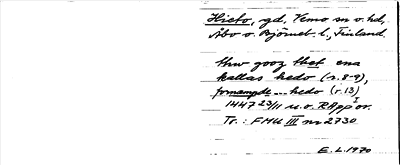 Hieto, gd, Vemo sn o. hd,
Åbo o. Björneb. l., Finland
thw gooz thet ena
kallas hedo (r. 8-9),
fornempde... hedo (r. 13)
1447 23/11 u.o. RApp or.
Tr.: FMU III nr 2730
E. L. 1970